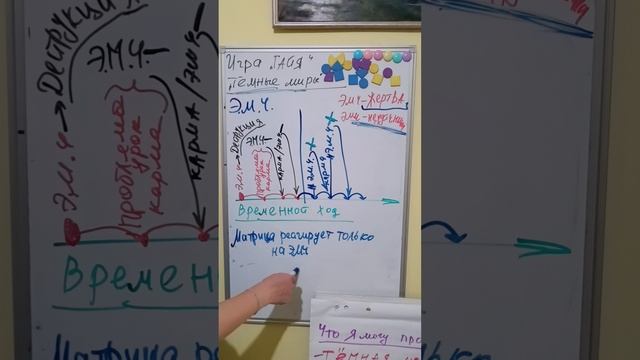 Игра "ГАЙЯ"
"Тёмные миры"
Э.М.Ч.
ЭМЧ-ЖЕРТВА
Э.М.Ч → Деструкция
Э.М.Ч
проблема
урок
карма
карма/
Э.М.Ч
карма
Э.М.Ч
Временной ход
Матрица реагирует только
на ЭМЧ
Что я могу
-Тёмная